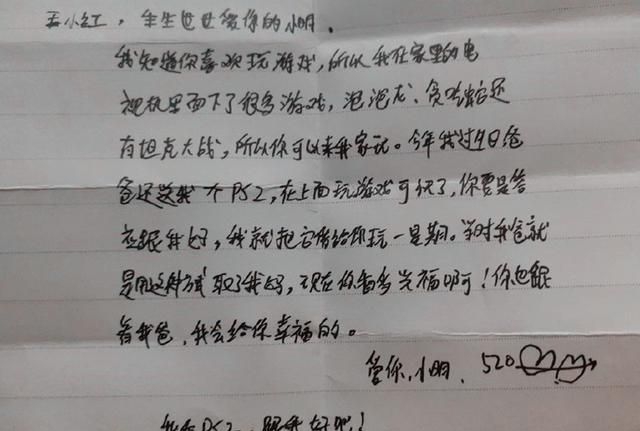 王小红，生生世世爱你的小明.
我知道你喜欢玩游戏，所以我在家里的电
视机里面下了很多游戏，泡泡龙、贪吃蛇还
有坦克大战，所以你可以来我家玩。今年我过生日爸
爸还送我个PS2，在上面玩游戏可快了，你要是答
应跟我好，我就把它借给你玩一星期。当时我爸就
是用这种方式取了我妈，现在你看多幸福啊！你也跟
着我爸，我会给你幸福的。
爱你，小明. 520
我有PS2，跟我好吧！